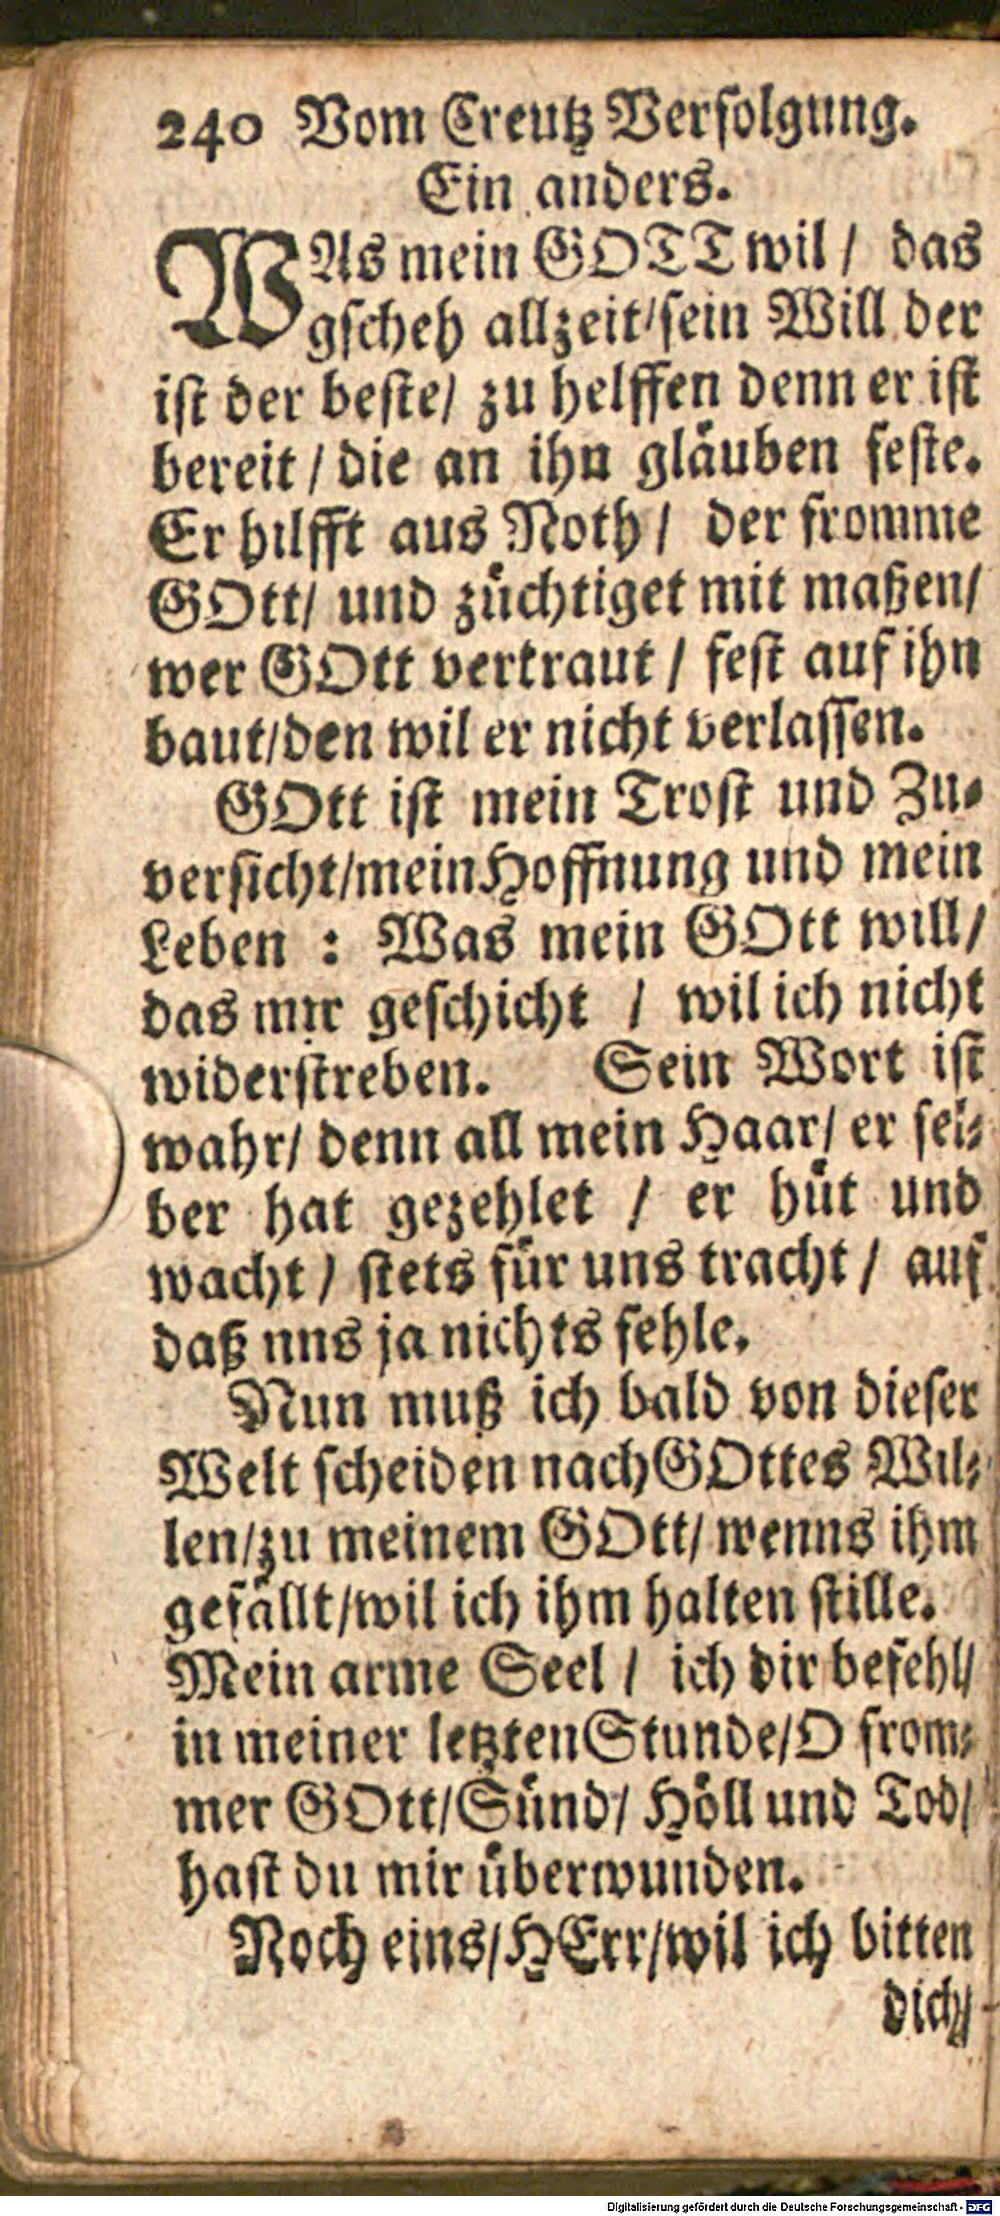 240 Vom Creutz Verfolgung.
Ein anders.
WAs mein GOTT wil / das
gscheh allzeit/sein Will der
ist der beste/ zu helffen denn er ist
bereit / die an ihn gläuben feste.
Er hilfft aus Noth / der fromme
GOtt/ und züchtiget mit maßen/
wer GOtt vertraut / fest auf ihn
baut/den wil er nicht verlassen.
GOtt ist mein Trost und Zu-
versicht/mein Hoffnung und mein
Leben : Was mein GOtt will/
das mir geschicht / wil ich nicht
widerstreben. Sein Wort ist
wahr/ denn all mein Haar/ er sel-
ber hat gezehlet / er hüt und
wacht / stets für uns tracht / auf
daß nns ja nichts fehle.
Nun muß ich bald von dieser
Welt scheiden nach GOttes Wil-
len/zu meinem GOtt/ wenns ihm
gefällt/wil ich ihm halten stille.
Mein arme Seel / ich dir befehl/
in meiner letzten Stunde/O from-
mer GOtt/Sünd/ Höll und Tod/
hast du mir überwunden.
Noch eins/HErr/wil ich bitten
dich/
Digitalisierung gefördert durch die Deutsche Forschungsgemeinschaft - DFG